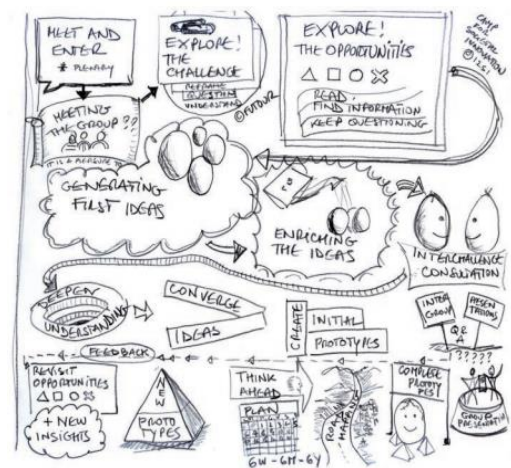 MEET AND
ENTER
* PLENARY
EXPLORE!
THE
CHALLENGE
REFRAME
QUESTION
UNDERSTAND
©FUTOUR
EXPLORE!
THE OPPORTUNITIES
READ
FIND INFORMATION
KEEP QUESTIONING
CAMP
FOR
SOCIETAL
INNOVATION
MEETING
THE GROUP??
IT IS A PLEASURE TO
GENERATING
FIRST IDEAS
ENRICHING
THE IDEAS
INTERCHALLENGE
CONSULTATION
DEEPER
UNDERSTANDING
CONVERGE
IDEAS
CREATE
INITIAL
PROTOTYPES
INTER
GROUP
PRESEN
TATIONS
Q&
A
?????
FEEDBACK
REVISIT
OPPORTUNITIES
+ NEW
INSIGHTS
NEW
PROTO
TYPES
THINK
AHEAD
PLAN
6W-6M-6Y
ROAD
MAPPING
COMPLETE
PROTOTY
PES!
GROUP
PRESENTATION